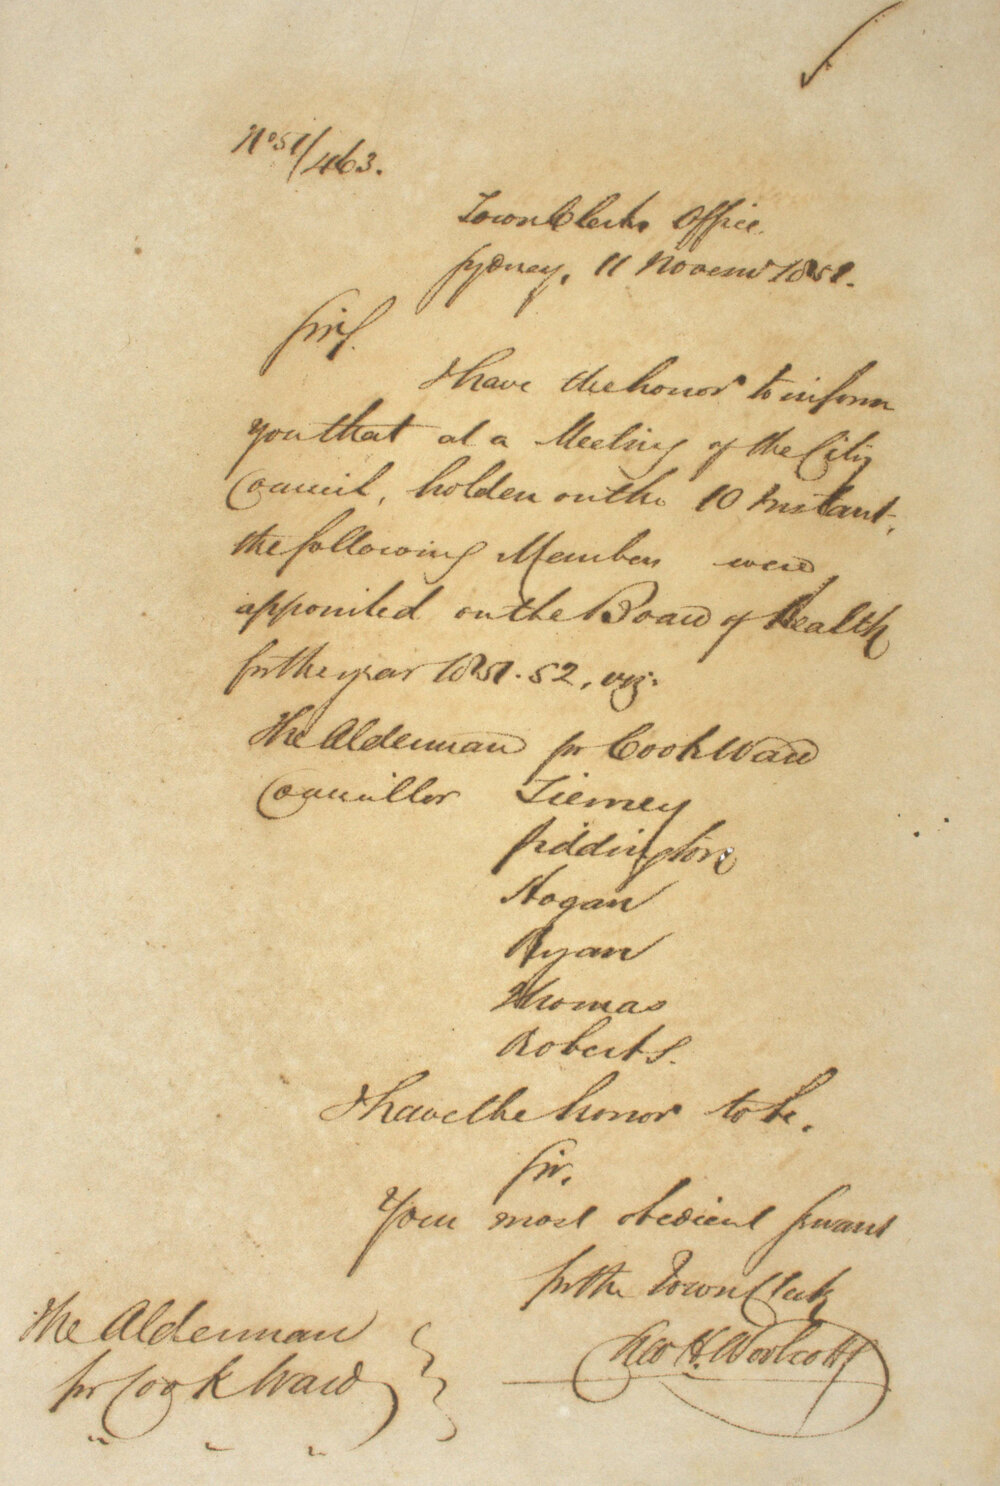 No 51/463.
Town Clerks Office.
Sydney, 11 Novemr 1851.
Sir,
I have the honor to inform
you that at a Meeting of the City
Council, holden on the 10 Instant,
the following Members were
appointed on the Board of Health
for the year 1851.52, viz:
The Alderman for Cook Ward
Councillor Tierney
Piddington
Hogan
Ryan
Thomas
Roberts.
I have the honor to be,
Sir,
Your most obedient Servant
for the Town Clerk
Geo H. Woolcott
The Alderman
for Cook Ward